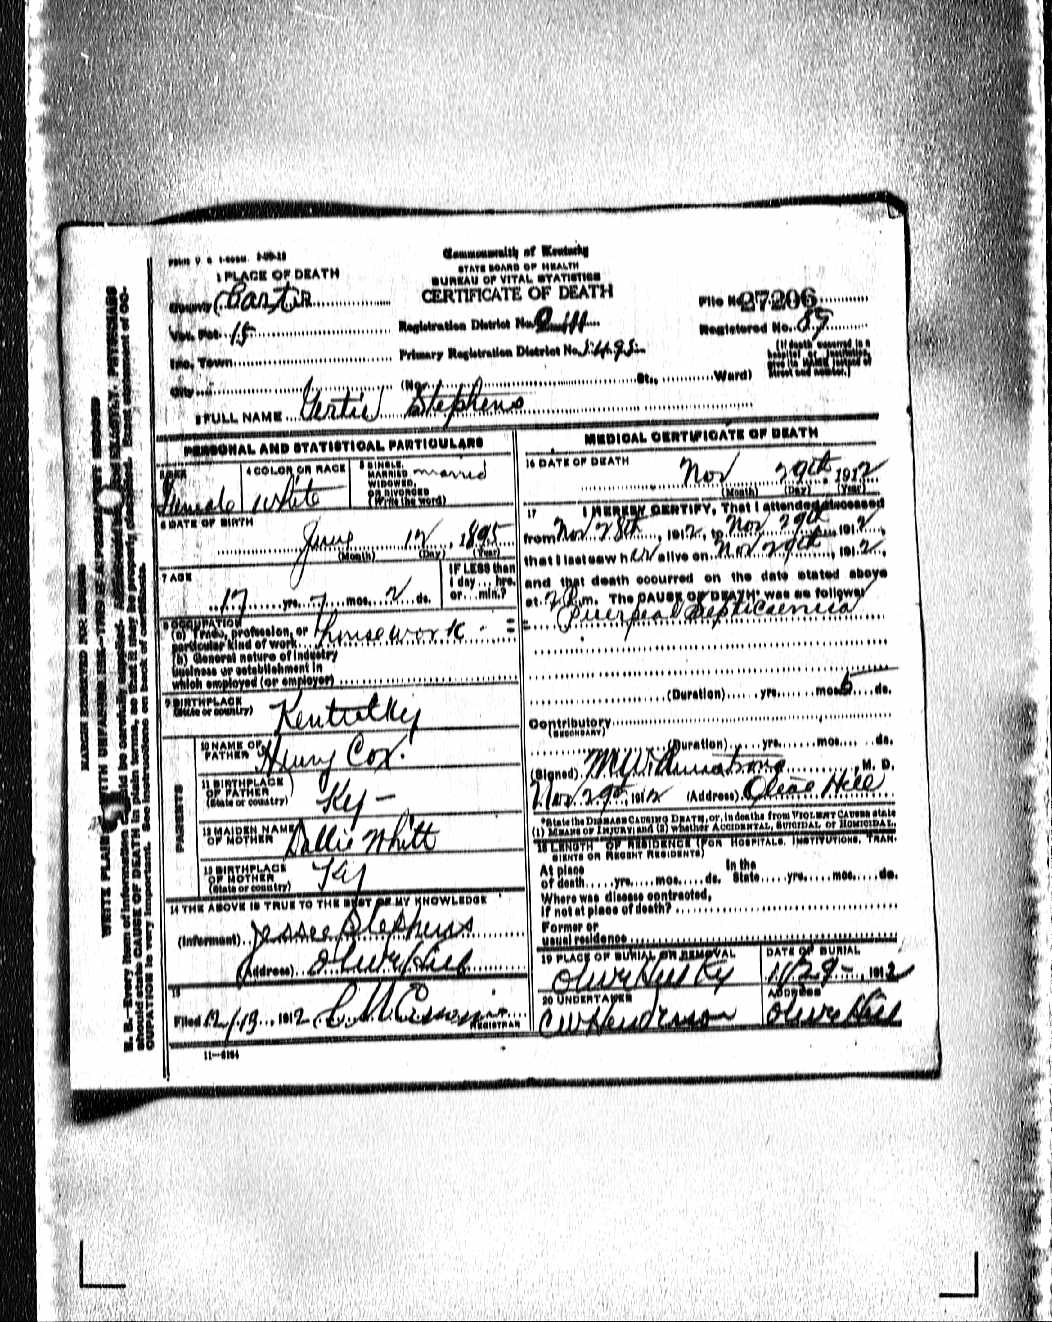 Commonwealth of Kentucky
STATE BOARD OF HEALTH
BUREAU OF VITAL STATISTICS
CERTIFICATE OF DEATH
1 PLACE OF DEATH
County Carter
Vot. Pct. 15
Inc. Town
City
Registration District No.
Primary Registration District No. 5495
File No. 27206
Registered No. 89
(If death occurred in a hospital or institution, give its NAME instead of street and number.)
(No. St., Ward)
2 FULL NAME Gertie Stephens
PERSONAL AND STATISTICAL PARTICULARS
3 SEX Female
4 COLOR OR RACE White
5 SINGLE, MARRIED, WIDOWED, OR DIVORCED (Write the word) married
6 DATE OF BIRTH June 12, 1895
(Month) (Day) (Year)
7 AGE 17 yrs. 7 mos. 2 ds.
IF LESS than 1 day... hrs. or... min.?
8 OCCUPATION
(a) Trade, profession, or particular kind of work housework
(b) General nature of industry
business or establishment in
which employed (or employer)
9 BIRTHPLACE (State or country) Kentucky
PARENTS
10 NAME OF FATHER Henry Cox
11 BIRTHPLACE OF FATHER (State or country) Ky -
12 MAIDEN NAME OF MOTHER Dallie Whitt
13 BIRTHPLACE OF MOTHER (State or country) Ky
14 THE ABOVE IS TRUE TO THE BEST OF MY KNOWLEDGE
(Informant) Jessee Stephens
(Address) Olive Hill
15
Filed 12/13, 1912
REGISTRAR
11-6184
MEDICAL CERTIFICATE OF DEATH
16 DATE OF DEATH Nov 29th, 1912
(Month) (Day) (Year)
17 I HEREBY CERTIFY, That I attended deceased
from Nov 28th, 1912, to Nov 29th, 1912,
that I last saw her alive on Nov 29th, 1912,
and that death occurred on the date stated above
at 2 P.m. The CAUSE OF DEATH* was as follows:
Puerpeal Septicaemia
(Duration) yrs. mos. 5 ds.
Contributory
(SECONDARY)
(Duration) yrs. mos. ds.
(Signed) Armstrong, M. D.
Nov. 29th, 1912 (Address) Olive Hill
*State the DISEASE CAUSING DEATH, or, in deaths from VIOLENT CAUSES state
(1) MEANS OF INJURY; and (2) whether ACCIDENTAL, SUICIDAL or HOMICIDAL.
18 LENGTH OF RESIDENCE (FOR HOSPITALS, INSTITUTIONS, TRANSIENTS OR RECENT RESIDENTS)
At place of death yrs. mos. ds. In the State yrs. mos. ds.
Where was disease contracted,
if not at place of death?
Former or
usual residence
19 PLACE OF BURIAL OR REMOVAL Olive Hill Ky
DATE OF BURIAL 11/29-, 1912
20 UNDERTAKER C W Henderson
ADDRESS Olive Hill
MARGIN RESERVED FOR BINDING